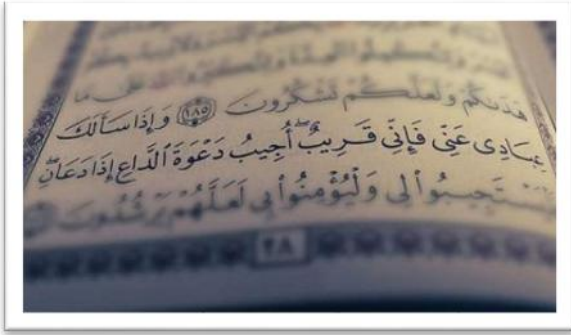 هَدَىٰكُمْ وَلَعَلَّكُمْ تَشْكُرُونَ ١٨٥ وَإِذَا سَأَلَكَ
عِبَادِى عَنِّى فَإِنِّى قَرِيبٌ ۖ أُجِيبُ دَعْوَةَ ٱلدَّاعِ إِذَا دَعَانِ ۖ
فَلْيَسْتَجِيبُوا۟ لِى وَلْيُؤْمِنُوا۟ بِى لَعَلَّهُمْ يَرْشُدُونَ
٢٨